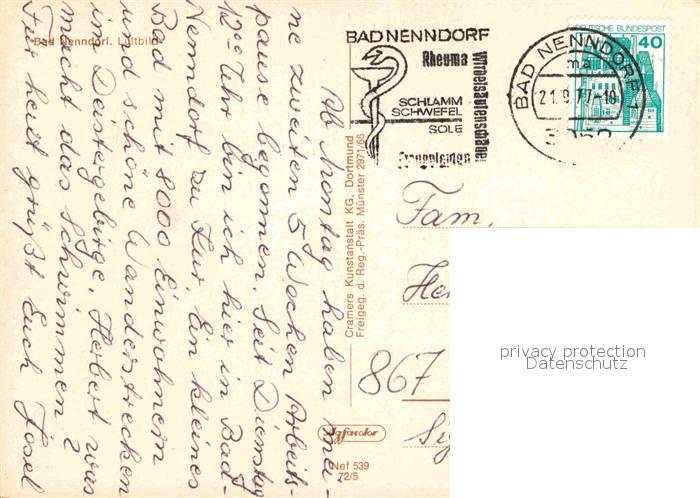 Bad Nenndorf. Luftbild
BAD NENNDORF
Rheuma
Wirbelsäulenschäden
SCHLAMM
SCHWEFEL
SOLE
Frauenleiden
BAD NENNDORF 1
ma
21.9.77-18
3052
DEUTSCHE BUNDESPOST
40
Ab Montag haben mei-
ne zweiten 5 Wochen Arbeits-
pause begonnen. Seit Dienstag
12°° Uhr bin ich hier in Bad-
Nenndorf zu Kur. Ein kleines
Bad mit 8000 Einwohnern
und schöne Wanderstrecken
im Deistergebirge. Herbert was
macht das Schwimmen?
Für heut grüßt Euch Josel
Cramers Kunstanstalt KG. Dortmund
Freigeg. d. Reg.-Präs. Münster 2971/66
Fam.
867
Agfacolor
Nef 539
72/5
privacy protection
Datenschutz